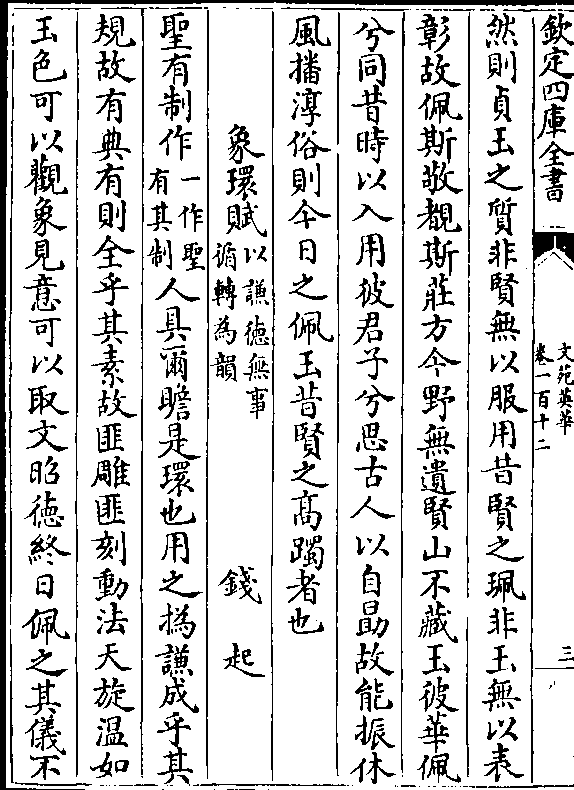 欽定四庫全書
文苑英華
卷一百十二
三
然則貞玉之質非賢無以服用昔賢之珮非玉無以表
彰故佩斯敬覩斯莊方今野無遺賢山不藏玉彼華佩
兮同昔時以入用彼君子兮思古人以自勗故能振休
風播淳俗則今日之佩玉昔賢之高躅者也
象環賦以謙德無事循轉為韻 錢起
聖有制作一作聖有其制人具爾瞻是環也用之撝謙成乎其
規故有典有則全乎其素故匪雕匪刻動法天旋温如
玉色可以觀象見意可以取文昭德終日佩之其儀不